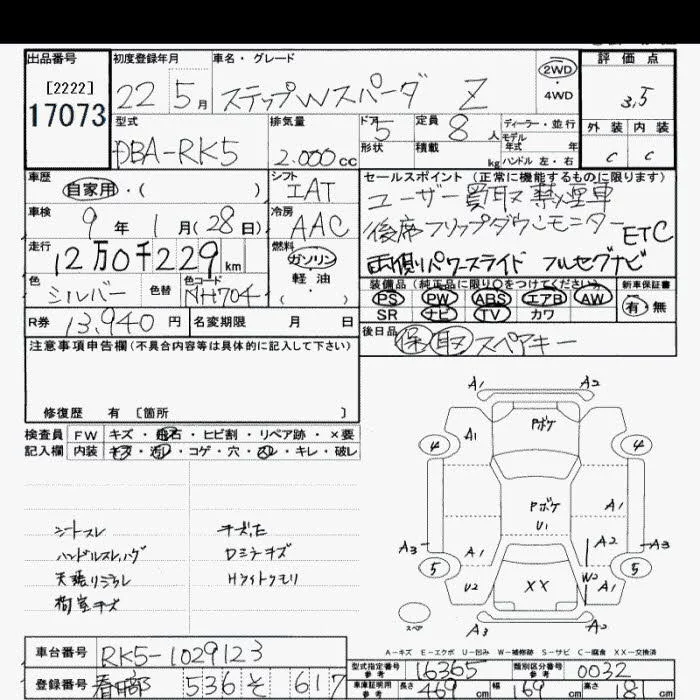 出品番号 初度登録年月 車名・グレード 評価点
[2222]
17073
22 5月 ステップWスパーダ Z 2WD・4WD 3.5
型式 排気量 ドア 5 定員 8人 ディーラー・並行 外装 内装
DBA-RK5 2.000cc 形状 積載 kg モデル年式 年 ハンドル 左・右 C C
車歴 シフト セールスポイント (正常に機能するものに限ります)
自家用・( ) IAT ユーザー買取 禁煙車
車検 冷房 後席フリップダウンモニター ETC
9年 1月(28日) AAC 両側パワースライド フルセグナビ
走行 燃料
12万0千229km ガソリン・軽油( )
色 色替 色コード 装備品 (純正品に限り○をつけてください) 新車保証書
シルバー NH704 PS PW ABS エアB AW 有・無
SR ナビ TV カワ
R券 13,940円 名変期限 月 日 後日品 保 取 スペアキー
注意事項申告欄(不具合内容等は具体的に記入して下さい)
修復歴 有 〔箇所 〕
検査員 FW キズ・飛石・ヒビ割・リペア跡・×要
記入欄 内装 キズ・汚レ・コゲ・穴・スレ・キレ・破レ
シートスレ
ハンドルスレ,ハゲ
天張りヨゴレ
荷室キズ
Dミラキズ
Hライトクモリ
A1 A2
Pボケ
4 A1 4
Pボケ
U1 A1
A3 A1 A2 A3
5 W2 5
U2 XX A1
スペア
A3 A2
A-キズ E-エクボ U-凹み W-補修跡 S-サビ C-腐食 XX-交換済
車台番号 RK5-1029123
型式指定番号 参考 16365 類別区分番号 参考 0032
登録番号 春日部 536 そ 617
車庫証明用 参考 長さ 469cm 幅 69cm 高さ 81cm